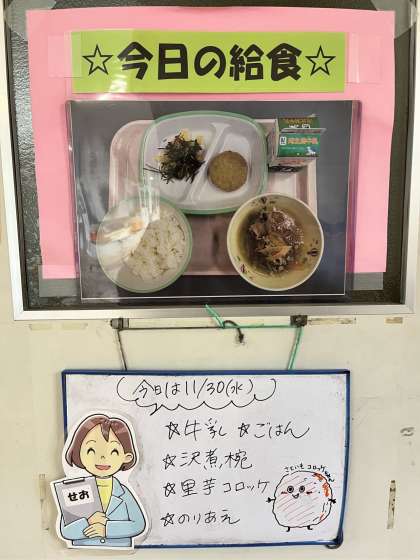 ☆今日の給食☆
今日は11/30(水)
☆牛乳 ☆ごはん
☆沢煮椀
☆里芋コロッケ
☆のりあえ
せお
さといもコロッケ